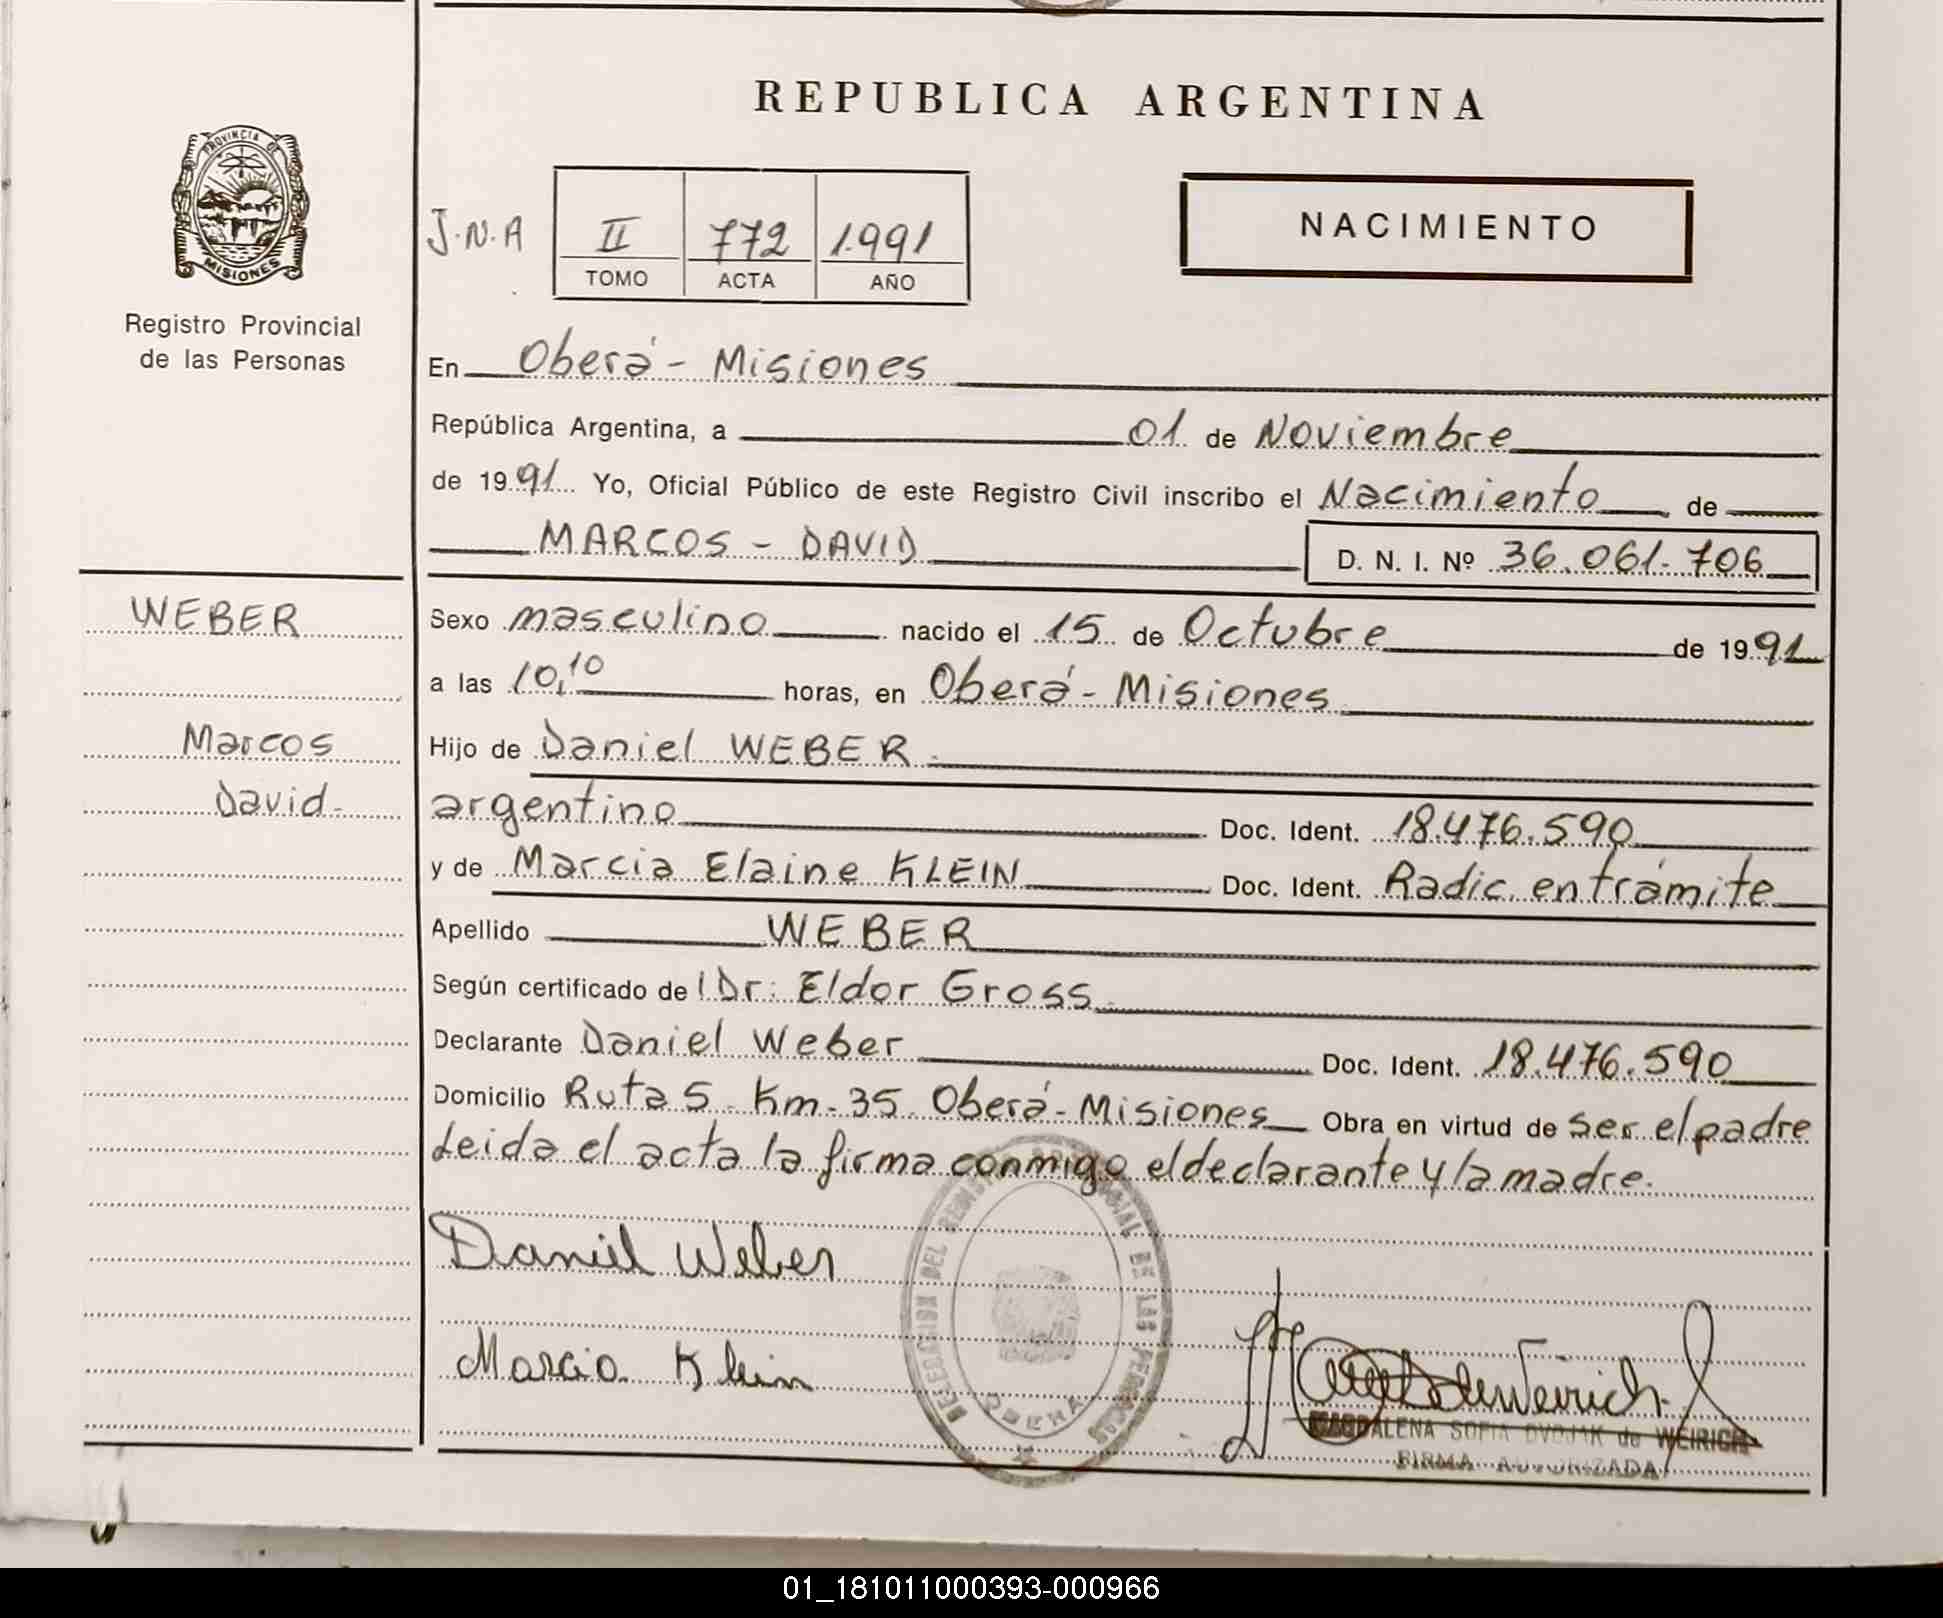 REPUBLICA ARGENTINA
PROVINCIA DE
MISIONES
Registro Provincial
de las Personas
J.N.A
II 772 1.991
TOMO ACTA AÑO
NACIMIENTO
En Oberá - Misiones
República Argentina, a 01 de Noviembre
de 1991 Yo, Oficial Público de este Registro Civil inscribo el Nacimiento de
MARCOS - DAVID D. N. I. Nº 36.061.706
WEBER
Marcos
David-
Sexo masculino nacido el 15 de Octubre de 1991
a las 10,10 horas, en Oberá - Misiones
Hijo de Daniel WEBER
argentino Doc. Ident. 18.476.590
y de Marcia Elaine KLEIN Doc. Ident. Radic. en trámite
Apellido WEBER
Según certificado de l Dr: Eldor Gross
Declarante Daniel Weber Doc. Ident. 18.476.590
Domicilio Ruta 5 Km-35 Oberá - Misiones Obra en virtud de ser el padre
Leida el acta la firma conmigo el declarante y la madre.
Daniel Weber
Marcia Klein
DELEGACION DEL REGISTRO PROVINCIAL DE LAS PERSONAS
OBERA
MAGDALENA SOFIA DVOJAK de WEIRICH
FIRMA AUTORIZADA
01_181011000393-000966